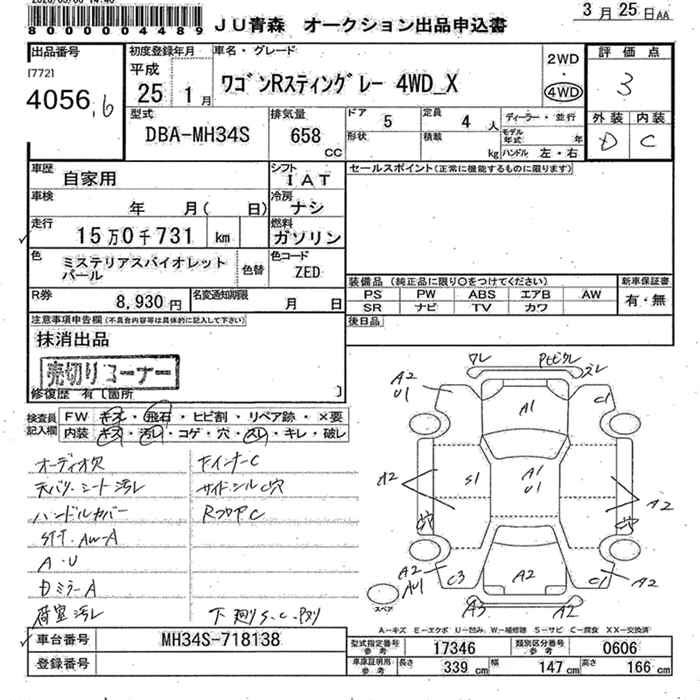 800000004489
JU青森 オークション出品申込書
3月25日AA
出品番号
[772]
4056
初度登録年月
平成
25 1月
車名・グレード
ワゴンRスティングレー 4WD_X
2WD
・
4WD
評価点
3
外装 内装
D C
型式
DBA-MH34S
排気量
658
cc
ドア
5
定員
4人
形状
積載
kg
ディーラー・並行
モデル年式 年
ハンドル 左・右
車歴
自家用
シフト
IAT
車検
年 月( 日)
冷房
ナシ
走行
15万0千731 km
燃料
ガソリン
色
ミステリアスバイオレット
パール
色替
色コード
ZED
R券
8,930円
名変通知期限
月 日
セールスポイント(正常に機能するものに限ります)
装備品(純正品に限り○をつけてください)
PS PW ABS エアB AW
SR ナビ TV カワ
新車保証書
有・無
後日品
注意事項申告欄(不具合内容等は具体的に記入して下さい)
抹消出品
売切りコーナー
修復歴 有〔箇所 〕
検査員
記入欄
FW キズ・飛石・ヒビ割・リペア跡・×要
内装 キズ・汚レ・コゲ・穴・スレ・キレ・破レ
オーディオ欠
天バリ・シート汚レ
ハンドルカバー
STT・AW-A
A・U
Dミラー A
荷室汚レ
インナーC
サイドシルC穴
下廻りS.C.
ワレ
ズレ
A2
U1
A1
C1
A2
S1
A1
U1
A2
A2
AU1
C3
A2
C1
A2
A3
A2
スペア
A-キズ E-エクボ U-凹み W-補修跡 S-サビ C-腐食 XX-交換済
車台番号
MH34S-718138
登録番号
型式指定番号
参考
17346
類別区分番号
参考
0606
車庫証明用
参考
長さ
339 cm
幅
147 cm
高さ
166 cm